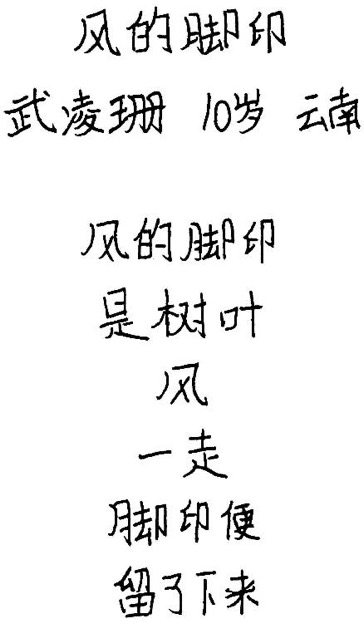 风的脚印
武凌珊 10岁 云南
风的脚印
是树叶
风
一走
脚印便
留了下来